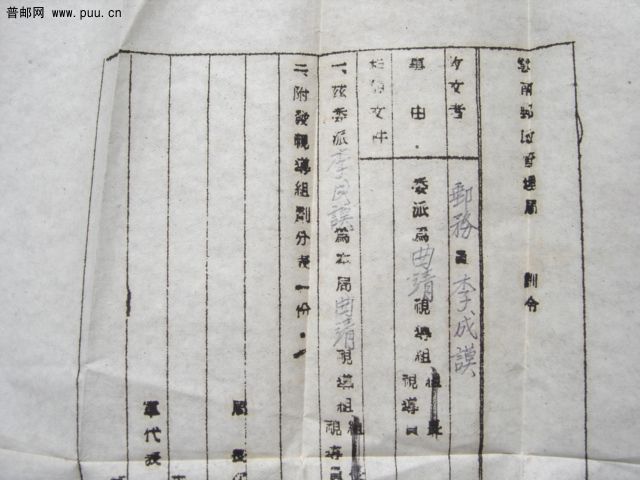 普邮网 www.puu.cn
郵政管理局 訓令
收文者 郵務員 李成謨
事由 委派為曲靖視導組組長視導員
相關文件
一、茲委派李成謨為本局曲靖視導組組長視導員
二、附發視導組劃分表一份。
局長
軍代表